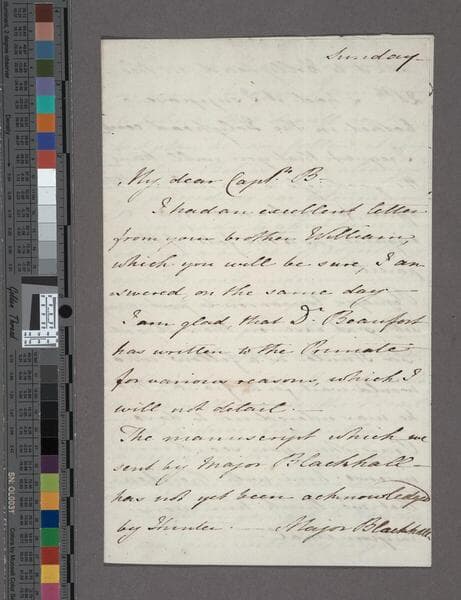 Sunday
My dear Capt.n B—
I had an excellent letter
from your brother William,
which you will be sure, I an
swered on the same day —
I am glad, that Dr. Beaufort
has written to the Primate
for various reasons, which I
will not detail. —
The manuscript which we
sent by Major Blackhall —
has not yet been acknowledged
by Hunter. — Major Blackhall
Golden Thread